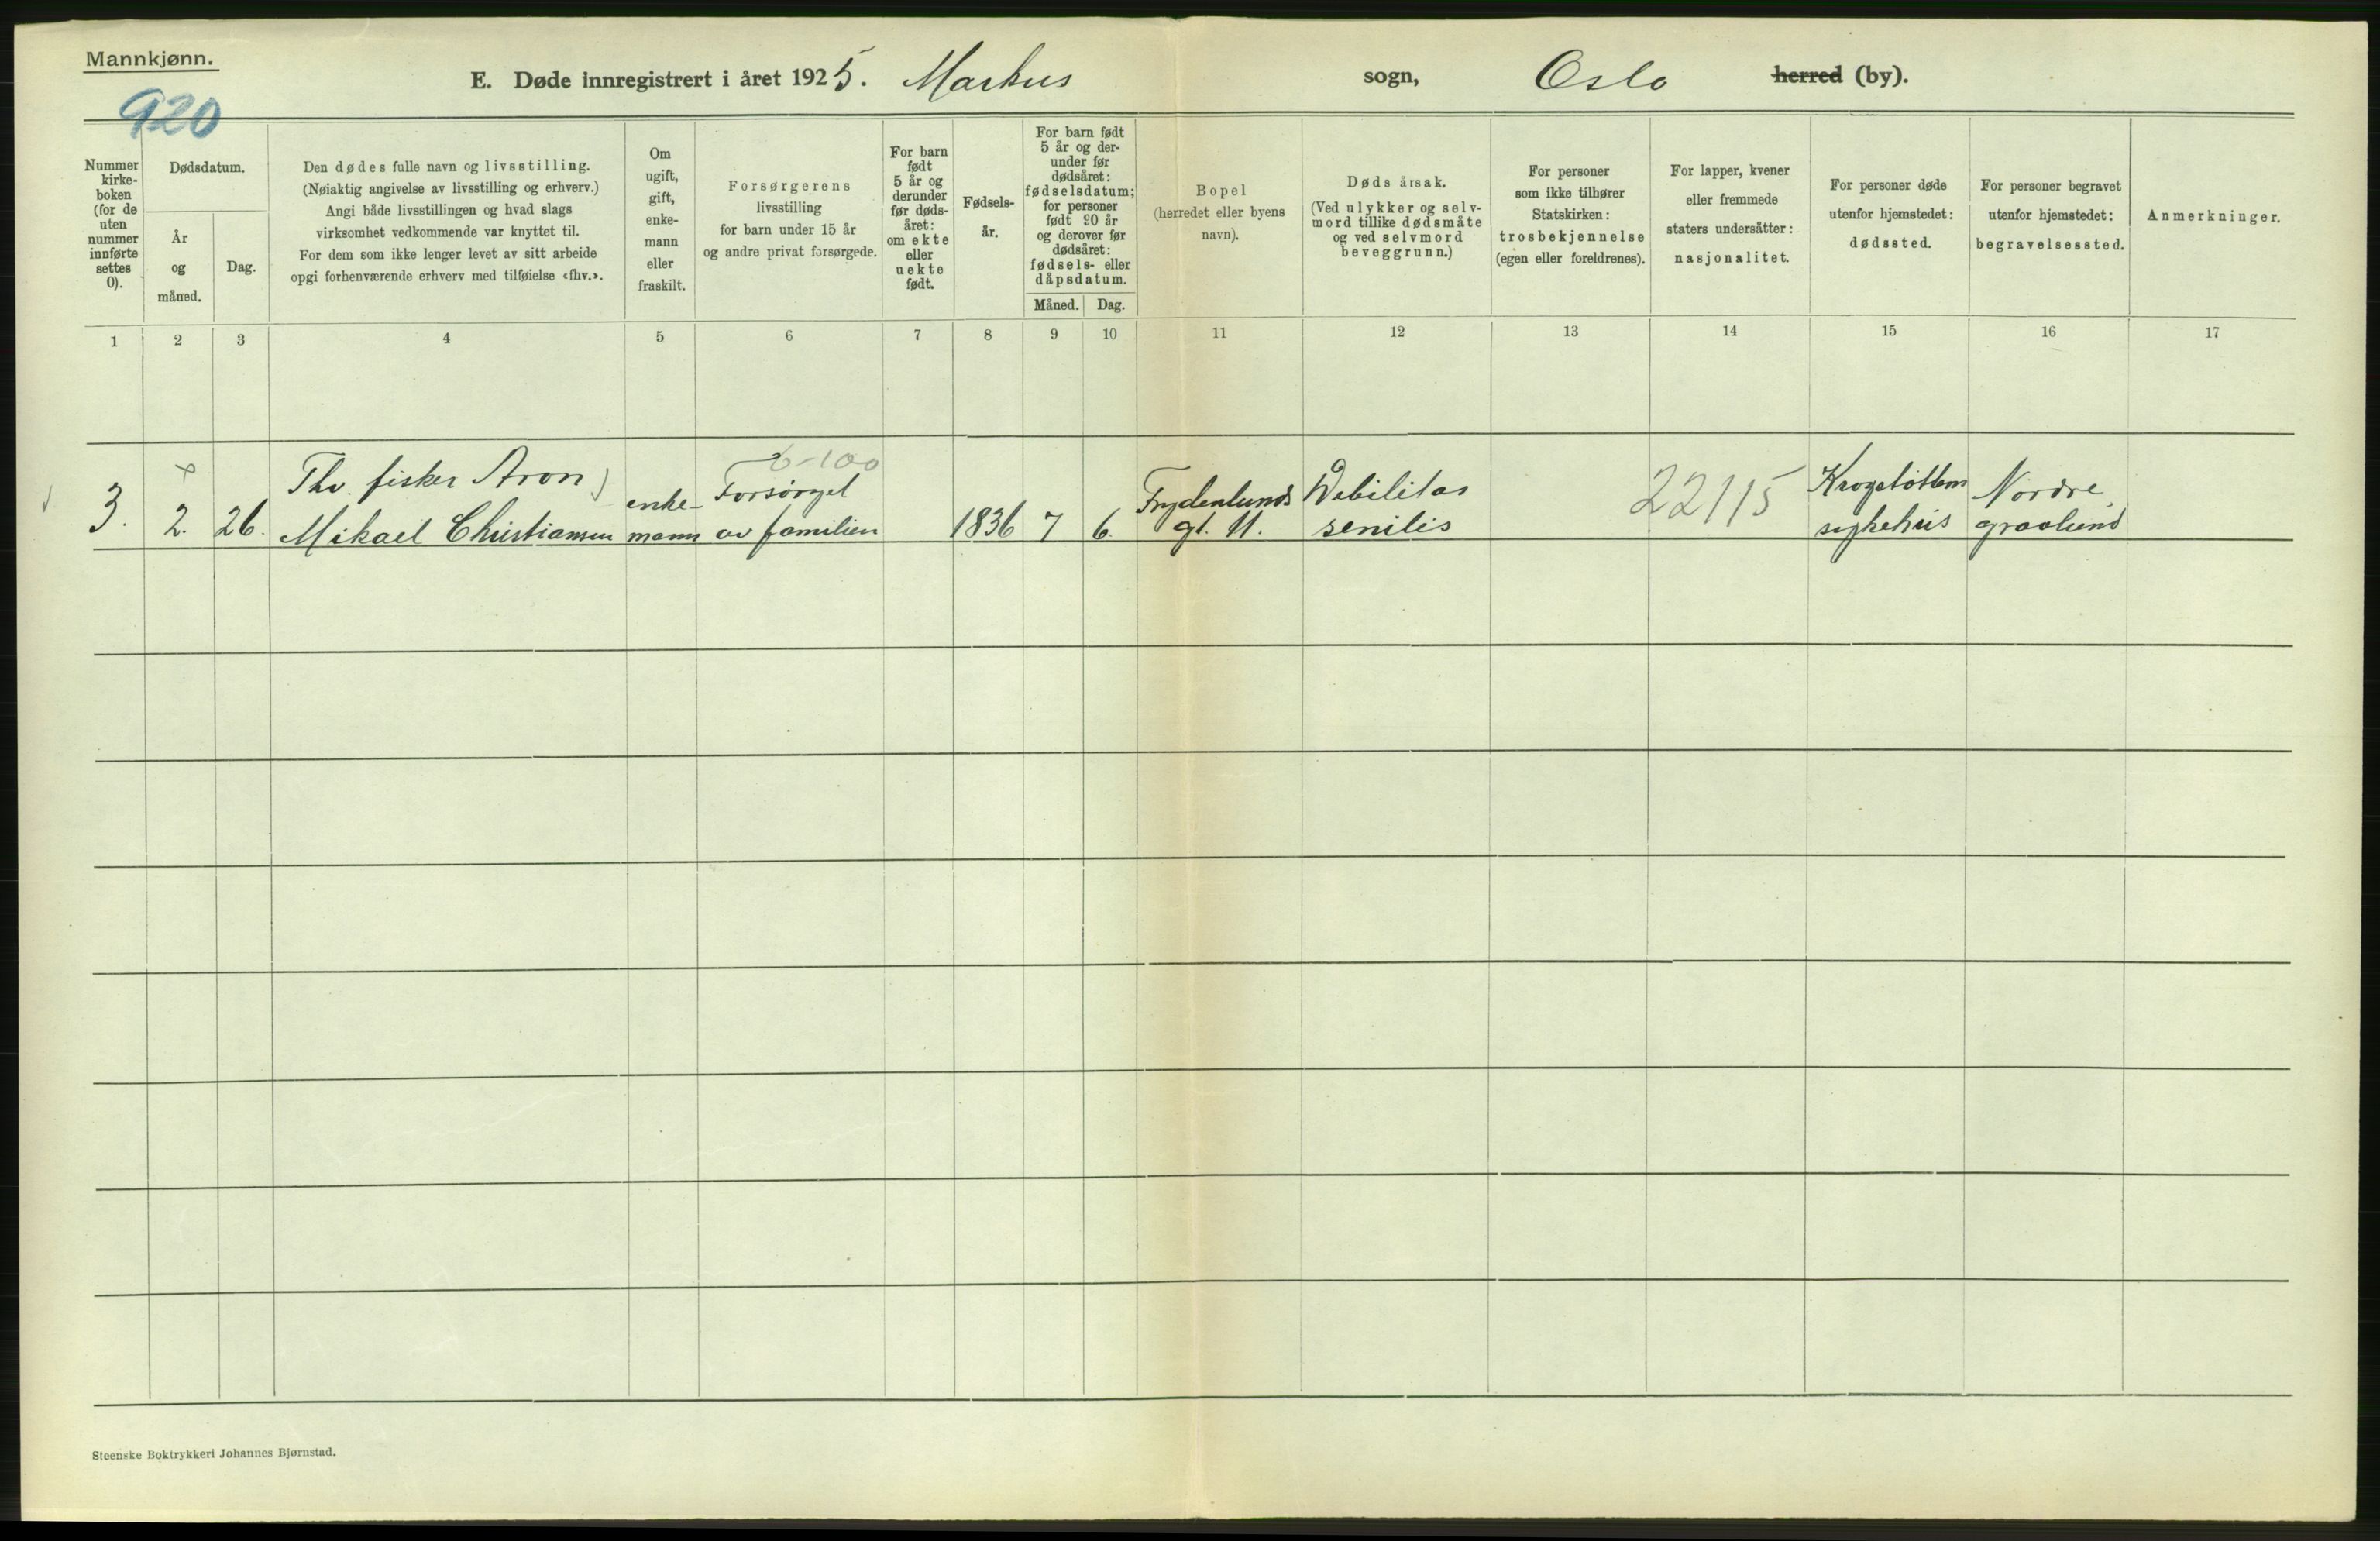 Mannkjønn.
E. Døde innregistrert i året 1925. Markus sogn, Oslo herred (by).
920
Nummer
kirke-
boken
(for de
uten
nummer
innførte
settes
0).
Dødsdatum.
År
og
måned.
Dag.
Den dødes fulle navn og livsstilling.
(Nøiaktig angivelse av livsstilling og erhverv.)
Angi både livsstillingen og hvad slags
virksomhet vedkommende var knyttet til.
For dem som ikke lenger levet av sitt arbeide
opgi forhenværende erhverv med tilføielse «fhv.».
Om
ugift,
gift,
enke-
mann
eller
fraskilt.
Forsørgerens
livsstilling
for barn under 15 år
og andre privat forsørgede.
For barn
født
5 år og
derunder
før døds-
året:
om ekte
eller
uekte
født.
Fødsels-
år.
For barn født
5 år og der-
under før
dødsåret:
fødselsdatum;
for personer
født 90 år
og derover før
dødsåret:
fødsels- eller
dåpsdatum.
Måned. Dag.
Bopel
(herredet eller byens
navn).
Døds årsak.
(Ved ulykker og selv-
mord tillike dødsmåte
og ved selvmord
beveggrunn.)
For personer
som ikke tilhører
Statskirken:
trosbekjennelse
(egen eller foreldrenes).
For lapper, kvener
eller fremmede
staters undersåtter:
nasjonalitet.
For personer døde
utenfor hjemstedet:
dødssted.
For personer begravet
utenfor hjemstedet:
begravelsessted.
Anmerkninger.
1 2 3 4 5 6 7 8 9 10 11 12 13 14 15 16 17
3.
2.
26.
Fhv. fisker Aron
Mikael Christiansen
enke-
mann
6-100
Forsørget
av familien
1836
7
6.
Frydenlunds
gt. 11.
Debilitas
senilis
22115
Krogstøtten
sykehus
Nordre
gravlund
Steenske Boktrykkeri Johannes Bjørnstad.